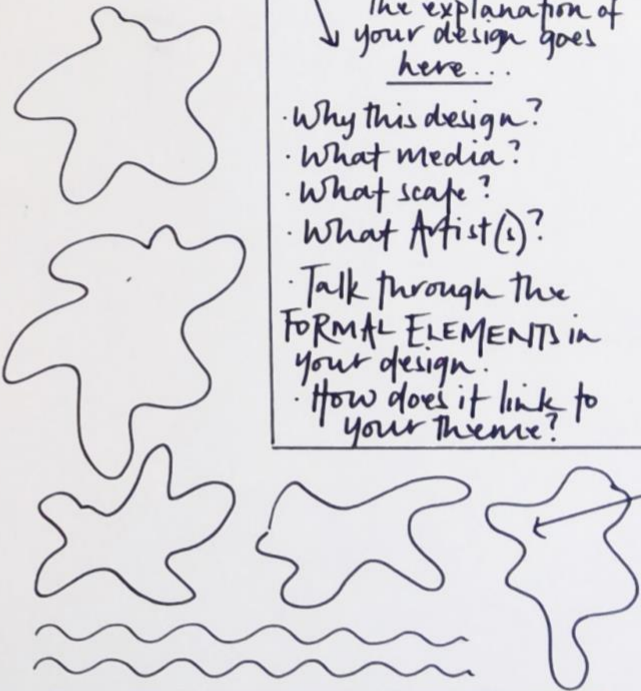 The explanation of
your design goes
here...
· Why this design?
· What media?
· What scape?
· What Artist(s)?
· Talk through the
FORMAL ELEMENTS in
your design.
· How does it link to
your theme?